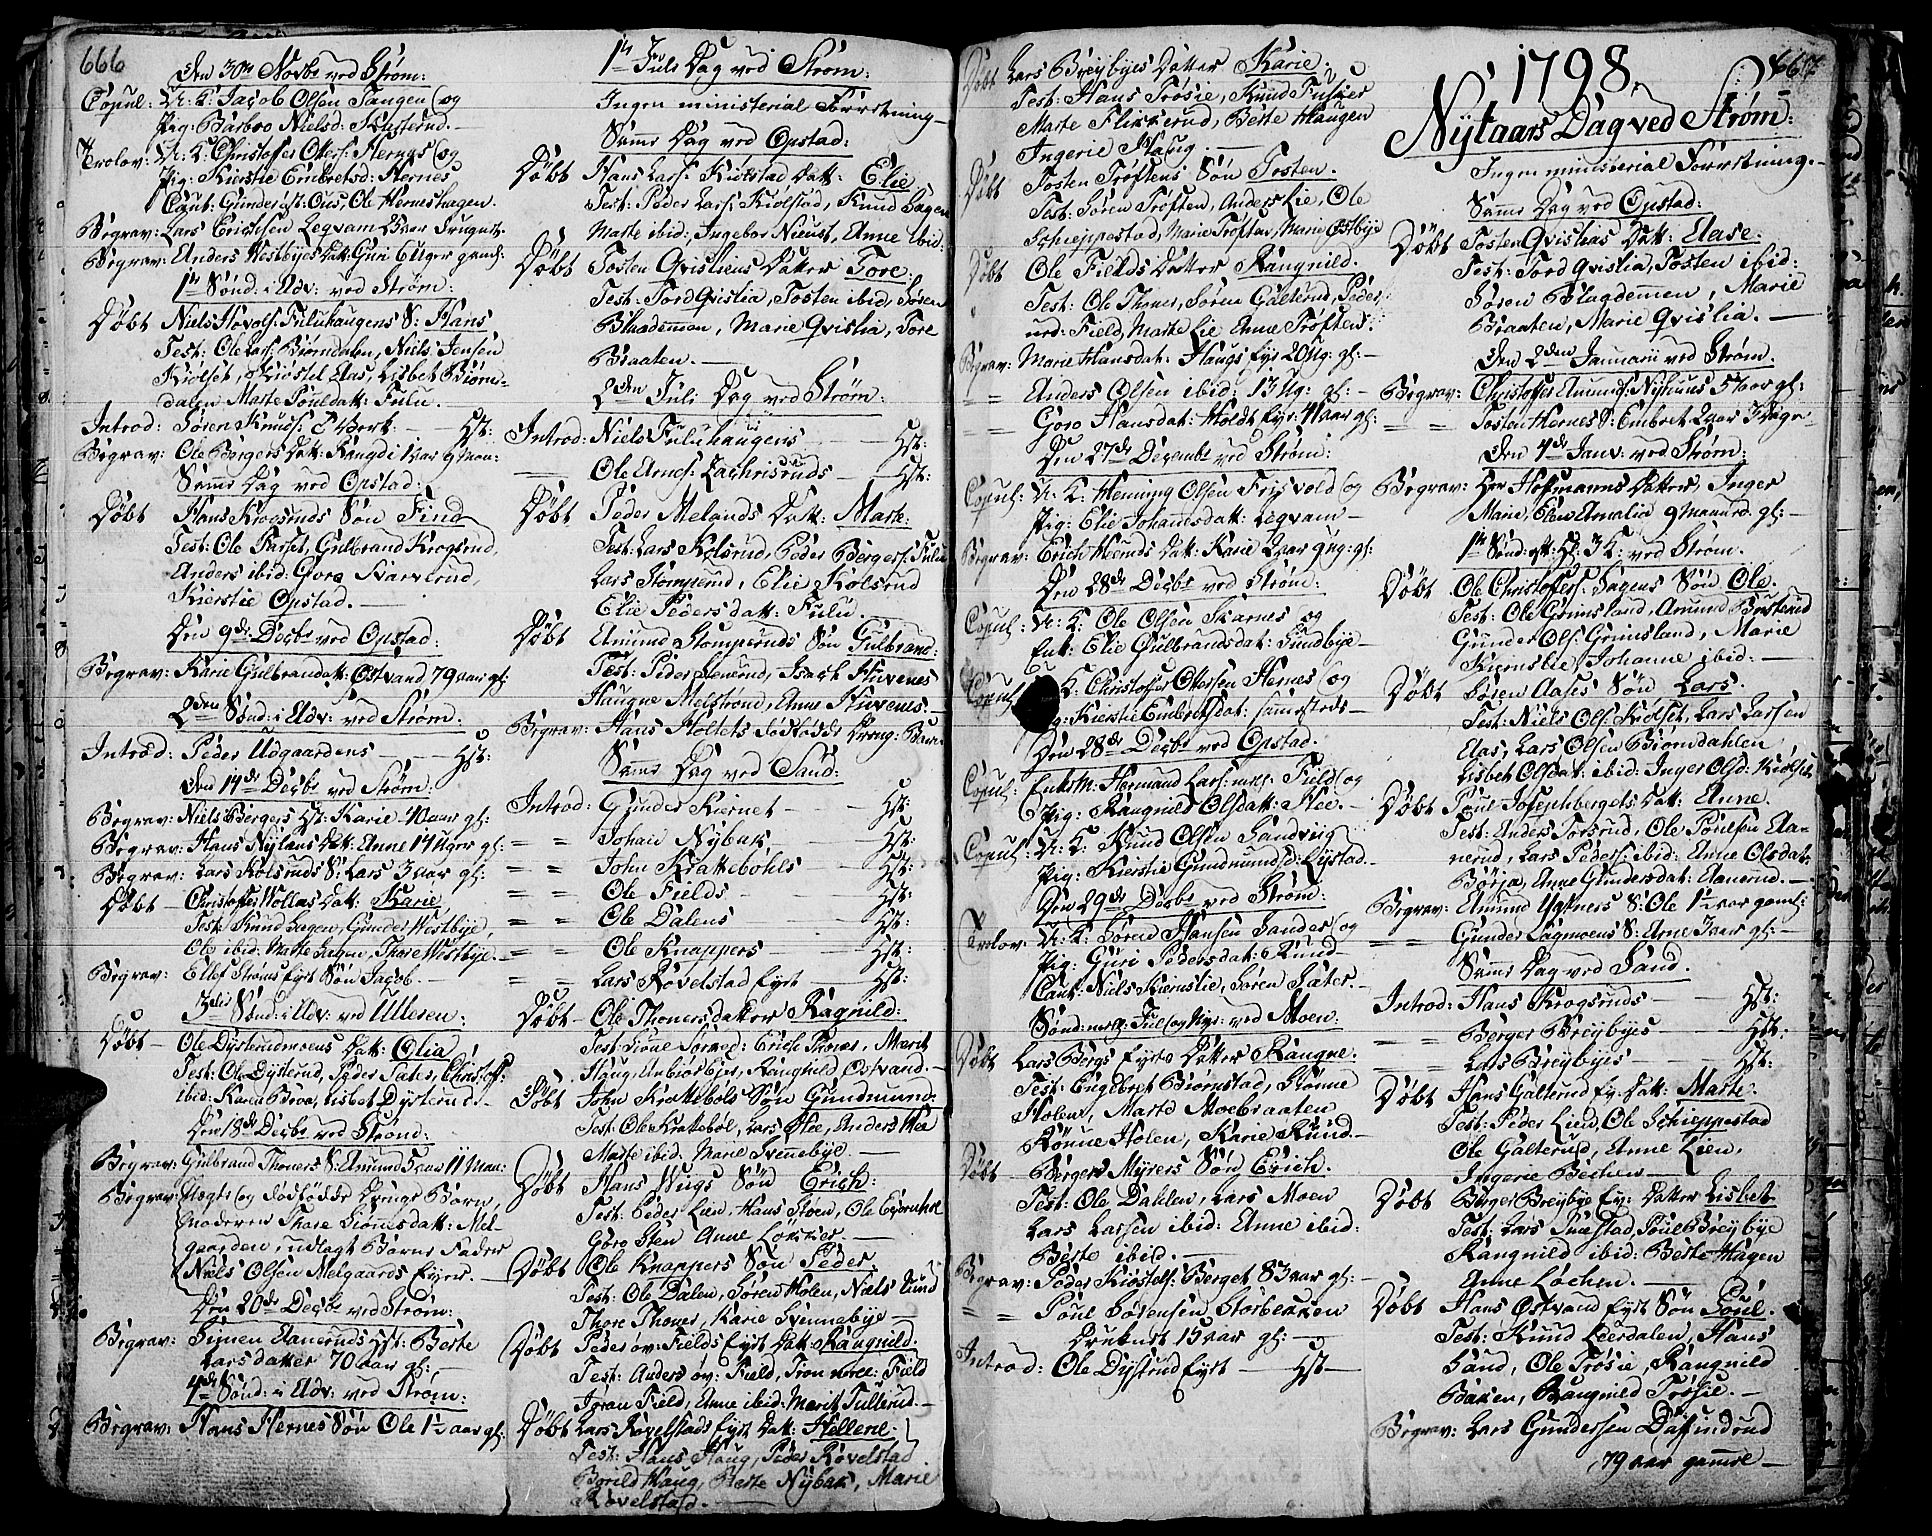 666
Den 30te Novbr ved Strøm:
Copul: U: K: Jacob Olsen Tangen (og
Pig: Barbro Nielsd: Kusterud.
Trolov: U: K: Christoffer Ottersen Hernes (og
Pig: Kierstie Embretsd: Hernes
Caut: Gunder Ous, Ole Herneshagen.
Begrav: Lars Erichsen Legvam
Begrav: Anders Westbyes Datt: Guri 6 Uger gaml:
1te Sønd: i Adv: ved Strøm:
Døbt Niels Fuluhaugens S: Hans
Test: Ole Lars: Biørndalen, Niels Jensen
Kiølset, Kiøstel Aas, Lisbet Biørn-
dalen Marte Pouldatt: Fulu.
Introd: Søren Knuds: Hst:
Begrav: Ole Bergers Datt: Rangdi 1 aar 9 Maan:
Samme Dag ved Opstad:
Døbt Hans Krogsruds Søn Find
Test: Ole Harset, Gulbrand Krogsrud,
Anders ibid: Goro Skarverud,
Kierstie Opstad.
Den 9de Decbr ved Opstad:
Begrav: Karie Gulbrandatt: Ostvand 79 aar gl:
2den Sønd: i Adv: ved Strøm:
Introd: Peder Udgaardens Hst:
Den 14de Decbr ved Strøm:
Begrav: Niels Bergers Hst: Karie 40 aar gl:
Begrav: Hans Nylans Datt: Anne 14 Uger gl:
Begrav: Lars Kolsruds S: Lars 3 aar gl:
Døbt Christoffer Wollas Datt: Karie
Test: Knud Hagen, Gunder Westbye,
Ole ibid: Marte Hagen, Thore Westbye.
Begrav: Ellef Strøms Eyet Søn Jacob.
3die Sønd: i Adv: ved Ulleren:
Døbt Ole Dysterudmoens Datt: Olia
Test: Ole Dysterud, Peder Sater, Christoff:
ibid: Karen Broe, Lisbet Dysterud.
Den 18de Decbr ved Strøm:
Begrav: Gulbrand Thoners S: Amund 5 aar 11 Maa:
Begrav: Uægte (og dødfødde Drenge Børn,
Moderen Thore Simensdatt: Mel-
gaarden, udlagt Barne Fader
Niels Olsen Melgaards Eyer.
Den 20de Decbr ved Strøm:
Begrav: Simen Aaneruds Hst: Berte
Larsdatter 70 aar gl:
4de Sønd: i Adv: ved Strøm:
Begrav: Hans Hernes Søn Ole 1½ aar gl:
1te Jule Dag ved Strøm:
Ingen ministerial Forretning
Samme Dag ved Opstad:
Døbt Hans Lars: Kiølstad Datt: Elie
Test: Peder Lars: Kiølstad, Knud Hagen
Marte ibid: Ingebor Nieust, Anne ibid:
Døbt Tosten Qvisliens Datter Tore
Test: Tord Qvislia, Tosten ibid, Søren
Blademoen, Marie Qvislia, Tore
Braaten.
2den Jule Dag ved Strøm:
Introd: Niels Fuluhaugens Hst:
Ole Arnes: Zachrisruds Hst:
Døbt Peder Melands Datt: Marte:
Test: Lars Kolsrud, Peder Bergers: Fulu
Lars Stomperud, Elie Kolsrud
Elie Pedersdatt: Fulu.
Døbt Amund Stomperuds Søn Gulbrand:
Test: Peder Stenerud, Isach Huvenes
Haagne Melstrønd, Anne Huvenes.
Begrav: Hans Holtets dødfødde Dreng: Barn
Samme Dag ved Sand:
Introd: Gunder Kiernet Hst:
= = Johan Nybak, Hst:
= = John Krakebohls Hst:
= = Ole Fields Hst:
= = Ole Dalens Hst:
= = Ole Knappers Hst:
= = Lars Rovelstad Eyet Hst:
Døbt Ole Thoners datter Ragnild:
Test: Erich Thoner, Marit
Haug, Anbiør Eier, Rangnild Ostvand.
Døbt John Krakebols Søn Gundmund:
Test: Ole Krakebøl, Lars Slie, Anders Wea
Marte ibid: Marie Svennebye
Døbt Hans Wiigs Søn Erich:
Test: Peder Lien, Hans Stoen, Ole Eyornhol
Goro Sten Anne Løkker.
Døbt Ole Knappers Søn Peder,
Test: Ole Dalen, Søren Holen, Niels Lund
Thore Thoner, Karie Svennebye
Døbt Peder øv: Fields Eyet Datt: Rangnild:
Test: Anders øv: Field, Tron nordre: Field
Joran Field, Anne ibid: Marit Tullerud.
Døbt Lars Rovelstads Eyet Datt: Hellene
Test: Hans Haug, Peder Rovelstad
Boreld Haug, Berte Nybak, Marie
Rovelstad.
Døbt Lars Breybyes Datter Karie.
Test: Hans Trøsie, Knud Fusker
Marte Flikkerud, Berte Haugen
Ingerie Haug.
Døbt Tosten Trøftens Søn Tosten.
Test: Søren Trøften, Anders Lie, Ole
Schieppestad, Marie Trøften, Marie Ostbye
Døbt Ole Fields Datter Rangnild.
Test: Ole Thoner, Søren Galterud, Peder
nord: Field, Marte Lie Anne Trøften.
Begrav: Marie Hansdat: Haugs Eyet 20 Ug: gl:
= = Anders Olsen ibid: 13 Ug: gl:
= = Goro Hansdat: Holdt Eyet 41 aar gl:
Den 27de Decembr ved Strøm:
Copul: U: K: Henning Olsen Frisvold (og
Pig: Elie Johannesdatt: Legvam
Begrav: Erich Huuds Datt: Karie 2 aar 9 Ug: gl:
Den 28de Decbr ved Strøm:
Copul: U: K: Ole Olsen Skarnes og
Enk: Elie Gulbrandsdat: Sundbye
Copul: K: Christoffer Ottersen Hernes (og
Pig: Kierstie Embretsdat: sammesteds
Den 28de Decbr ved Opstad.
Copul: Enkem: Hermund Lars: Field (og
Pig: Rangnild Olsdatt: Slie.
Copul: U: K: Knud Olsen Sandviig
Pig: Kierstie Gundmundsd: Kystad.
Den 29de Decbr ved Strøm:
Trolov: U: K: Søren Hansen Sander (og
Pig: Guri Pedersdat: Rund
Caut: Niels Kiernslie, Søren Sater.
Sønd: mell: Juel (og Nye: ved Moen.
Døbt Lars Bergs Eyets Datter Rangne.
Test: Engebret Biørnstad, Stønne
Holen, Marte Moebraaten
Rønne Holen, Karie Rund.
Døbt Berger Myrers Søn Erich.
Test: Ole Dahlen, Lars Moen
Lars Larsen ibid: Anne ibid:
Berte ibid.
Begrav: Peder Kiøstels: Berget 83 aar gl:
= = Poul Børensen Storbekken
Druknet 15 aar gl:
Introd: Ole Dystrud Eyet Hst
667
1798,
Nytaars Dag ved Strøm:
Ingen ministerial Forretning.
Samme Dag ved Opstad:
Døbt Tosten Qvislias Datt: Aase:
Test: Tord Qvislia, Tosten ibid:
Søren Bladdemoen, Marie
Braaten, Marie Qvislia.
Den 2den Januarii ved Strøm.
Begrav: Christoffer Amunds: Nyhuus 56 aar gl:
= = Tosten Hernes S: Embret 2 aar
Den 4de Janv: ved Strøm:
Begrav: Herr Hofmanns Datter, Inger
Marie, Elen Amalia 9 Maaned. gl:
1te Sønd: eft: H: 3 K: ved Strøm.
Døbt Ole Christoffers: Hagens Søn Ole.
Test: Ole Grimsland, Amund Busterud
Gunder Ols: Grimsland, Marie
Kiernslie Johanne ibid:
Døbt Søren Aases Søn Lars.
Test: Niels Ols: Kiølset, Lars Larsen
Aas, Lars Olsen Biørndahlen
Lisbet Olsdat: ibid: Inger Olsd: Kiølset
Døbt Poul Josephbergets Datt: Anne.
Test: Anders Torsrud, Ole Poulsen Aa-
nerud, Lars Peders: ibid: Anne Olsdat:
Børja, Anne Gundersdat: Aanerud.
Begrav: Amund Ugsners S: Ole 1½ aar gaml:
= = Gunder Lagmoens S: Arne 3 aar gl:
Samme Dag ved Sand.
Introd: Hans Krogsruds Hst:
= = Berger Breybyes Hst:
= = Lars Breybyes Hst:
Døbt Hans Galterud Ey: Datt: Marte.
Test: Peder Lien, Ole Schieppestad
Ole Galterud, Anne Lien,
Ingerie Becken
Døbt Berger Breybye Ey: Datter Lisbet
Test: Lars Sustad, Poul Breybye
Rangnild ibid: Berte Hagen
Anne Lochen.
Døbt Hans Ostvand Eyet Søn Poul.
Test: Knud Leerdalen, Hans
Sand, Ole Trøsie, Rangnild
Bakken, Rangnild Trøsie.
Begrav: Lars Gundersen Dasundrud
79 aar gammel